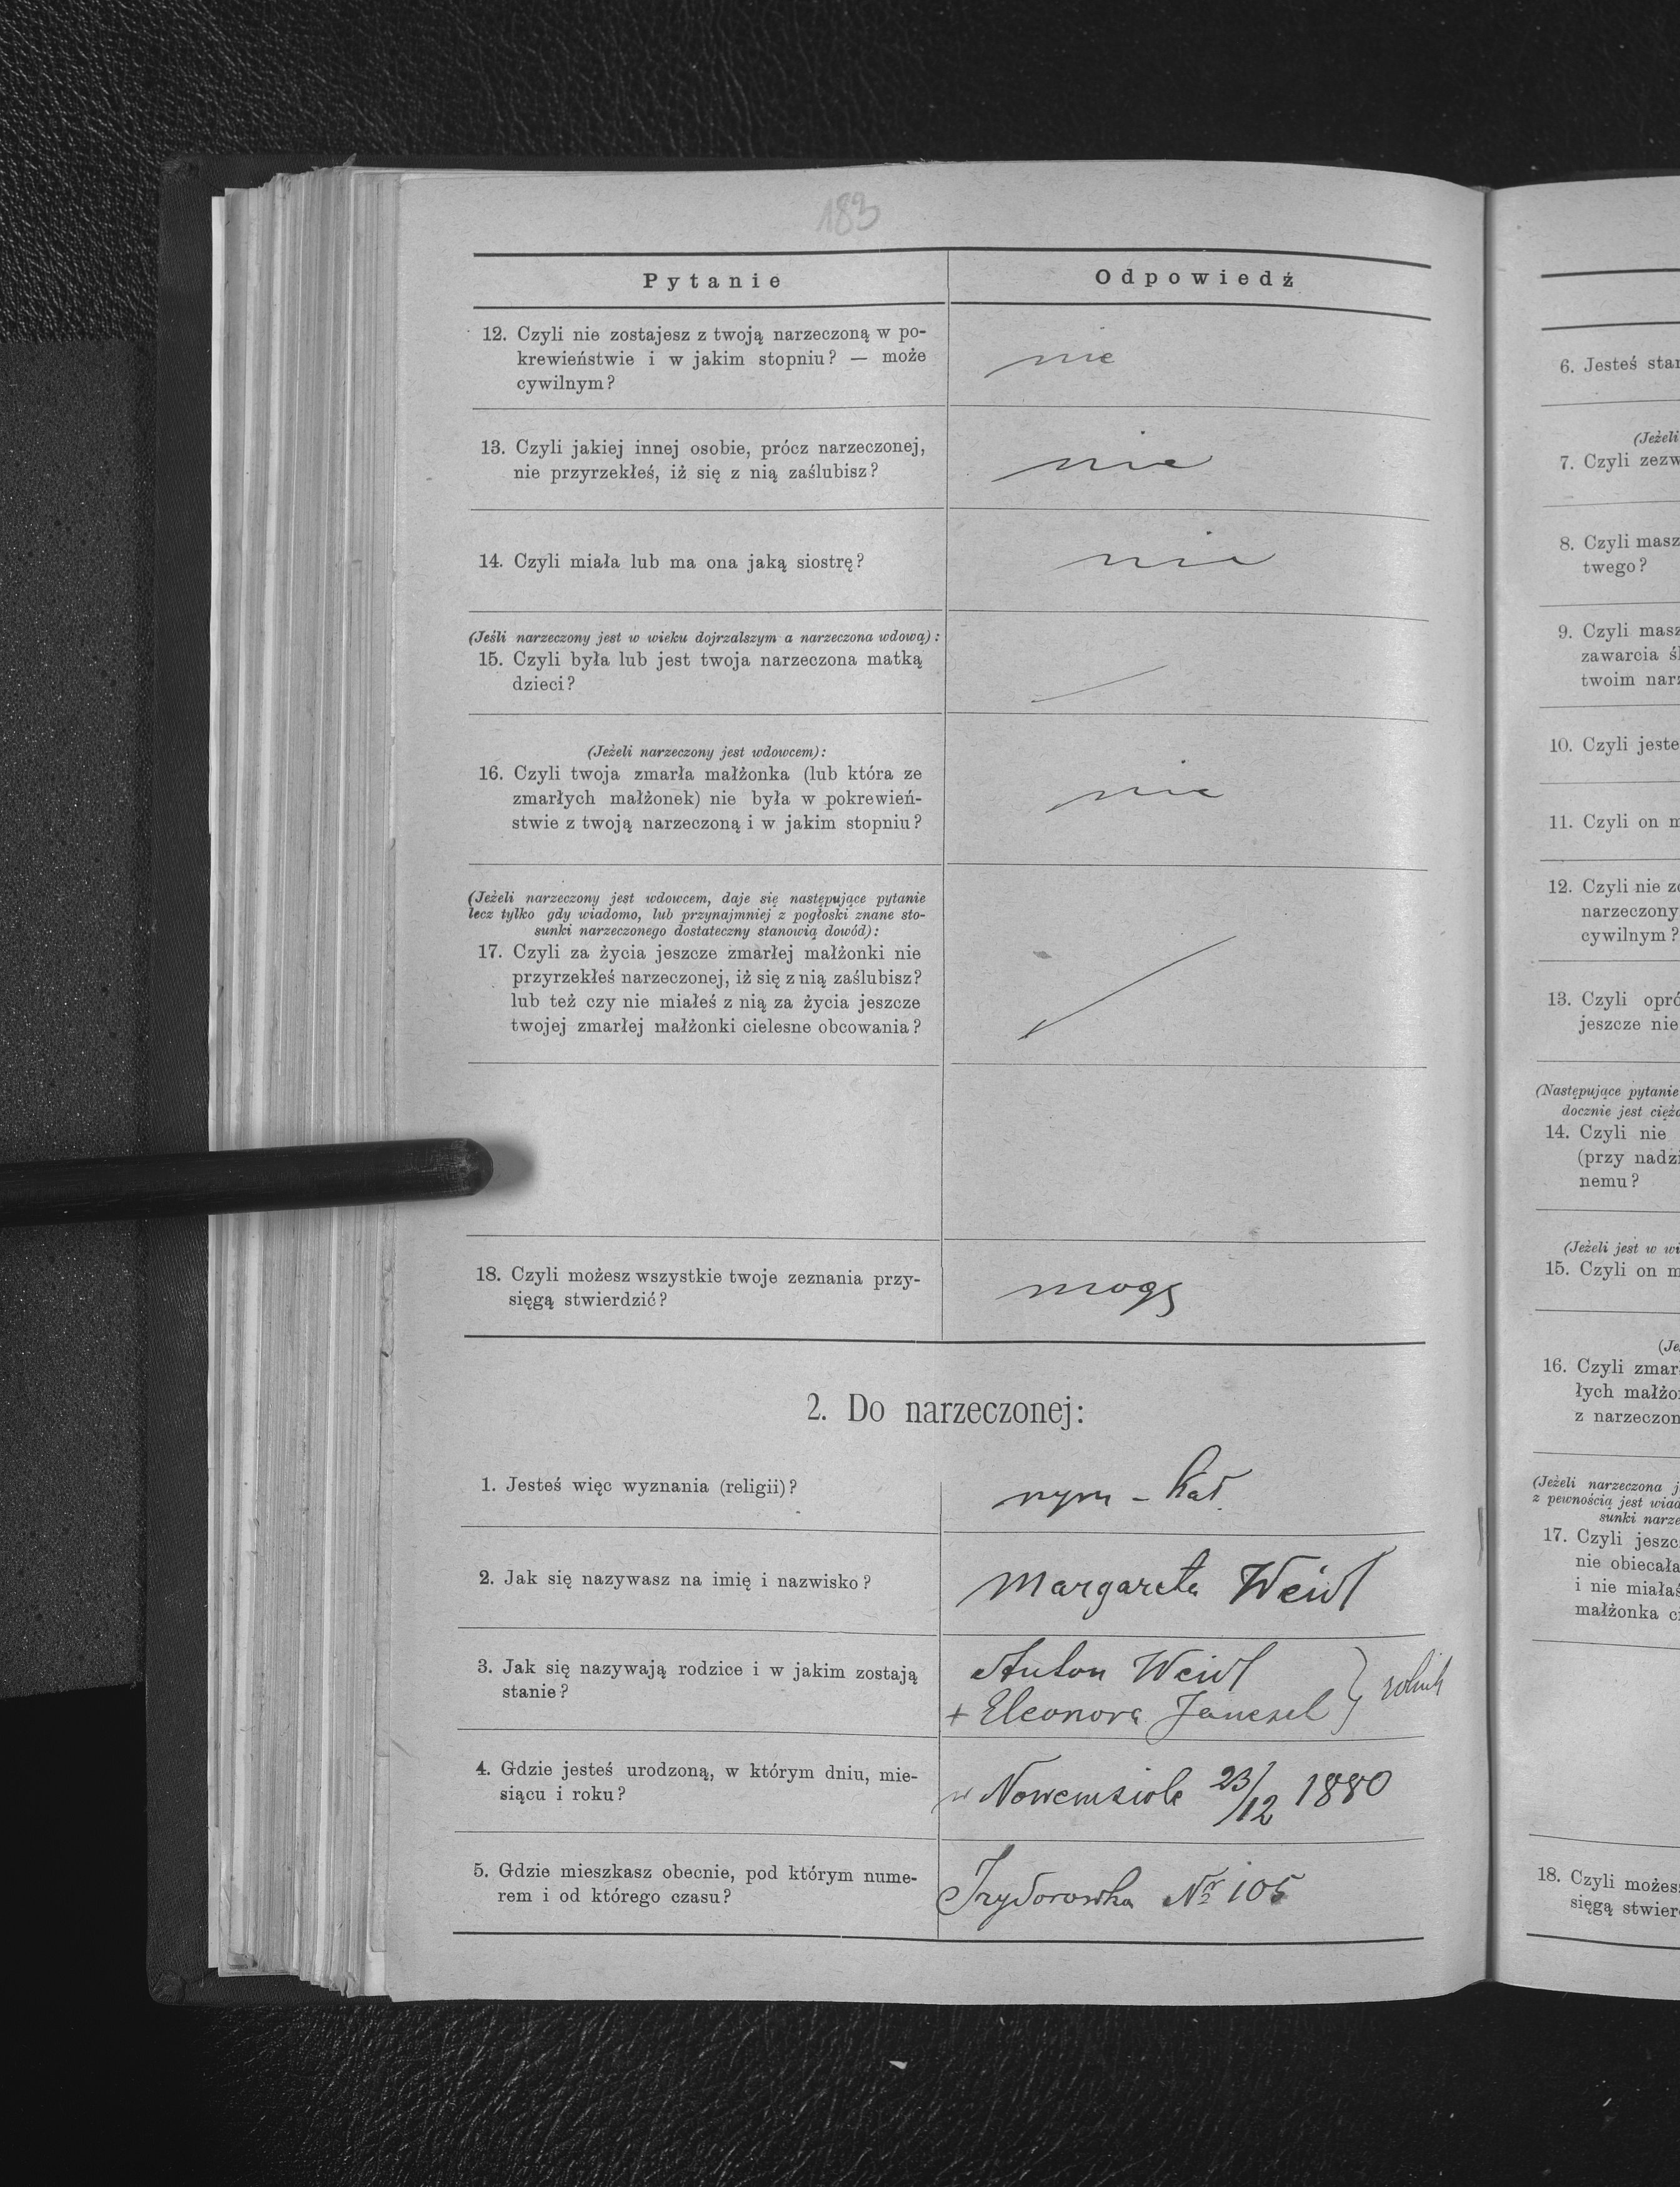 183
Pytanie
Odpowiedź
12. Czyli nie zostajesz z twoją narzeczoną w po-
krewieństwie i w jakim stopniu? — może
cywilnym?
nie
13. Czyli jakiej innej osobie, prócz narzeczonej,
nie przyrzekłeś, iż się z nią zaślubisz?
nie
14. Czyli miała lub ma ona jaką siostrę?
nie
(Jeśli narzeczony jest w wieku dojrzalszym a narzeczona wdową):
15. Czyli była lub jest twoja narzeczona matką
dzieci?
(Jeżeli narzeczony jest wdowcem):
16. Czyli twoja zmarła małżonka (lub która ze
zmarłych małżonek) nie była w pokrewień-
stwie z twoją narzeczoną i w jakim stopniu?
nie
(Jeżeli narzeczony jest wdowcem, daje się następujące pytanie
lecz tylko gdy wiadomo, lub przynajmniej z pogłoski znane sto-
sunki narzeczonego dostateczny stanowią dowód):
17. Czyli za życia jeszcze zmarłej małżonki nie
przyrzekłeś narzeczonej, iż się z nią zaślubisz?
lub też czy nie miałeś z nią za życia jeszcze
twojej zmarłej małżonki cielesne obcowania?
18. Czyli możesz wszystkie twoje zeznania przy-
sięgą stwierdzić?
mogę
2. Do narzeczonej:
1. Jesteś więc wyznania (religii)?
rzym - kat.
2. Jak się nazywasz na imię i nazwisko?
Margareta Weidl
3. Jak się nazywają rodzice i w jakim zostają
stanie?
Anton Weidl
+ Eleonora } rolnik
4. Gdzie jesteś urodzoną, w którym dniu, mie-
siącu i roku?
w Nowemsiole 23/12 1880
5. Gdzie mieszkasz obecnie, pod którym nume-
rem i od którego czasu?
Izydorowka Nr 105
6. Jesteś star
(Jeżeli
7. Czyli zezw
8. Czyli masz
twego?
9. Czyli masz
zawarcia śl
twoim narz
10. Czyli jeste
11. Czyli on m
12. Czyli nie zo
narzeczony
cywilnym?
13. Czyli opró
jeszcze nie
(Następujące pytanie
docznie jest cięża
14. Czyli nie
(przy nadzi
nemu?
(Jeżeli jest w wi
15. Czyli on m
(Je
16. Czyli zmar
łych małżo
z narzeczon
(Jeżeli narzeczona j
z pewnością jest wiad
sunki narze
17. Czyli jeszc
nie obiecała
i nie miałaś
małżonka ci
18. Czyli możes
sięgą stwier